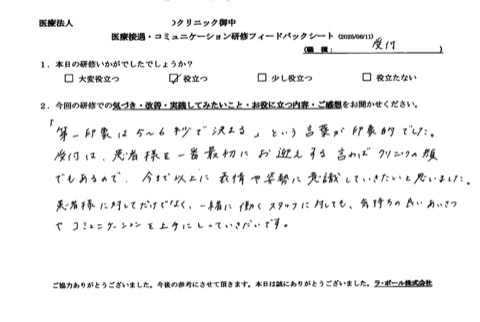 医療法人　　　　　　　　　　)クリニック御中
医療接遇・コミュニケーション研修フィードバックシート (2025/06/11)
(職　種：　受付　　　　)
１．本日の研修いかがでしたでしょうか？
□ 大変役立つ　　☑ 役立つ　　□ 少し役立つ　　□ 役立たない
２．今回の研修での気づき・改善・実践してみたいこと・お役に立つ内容・ご感想をお聞かせください。
「第一印象は5〜6秒で決まる」という言葉が印象的でした。
受付は、患者様を一番最初にお迎えする言わばクリニックの顔
でもあるので、今まで以上に表情や姿勢に意識していきたいと思いました。
患者様に対してだけでなく、一緒に働くスタッフに対しても、気持ちの良いあいさつ
やコミュニケーションを上手にとっていきたいです。
ご協力ありがとうございました。今後の参考にさせて頂きます。本日は誠にありがとうございました。ラ・ポール株式会社